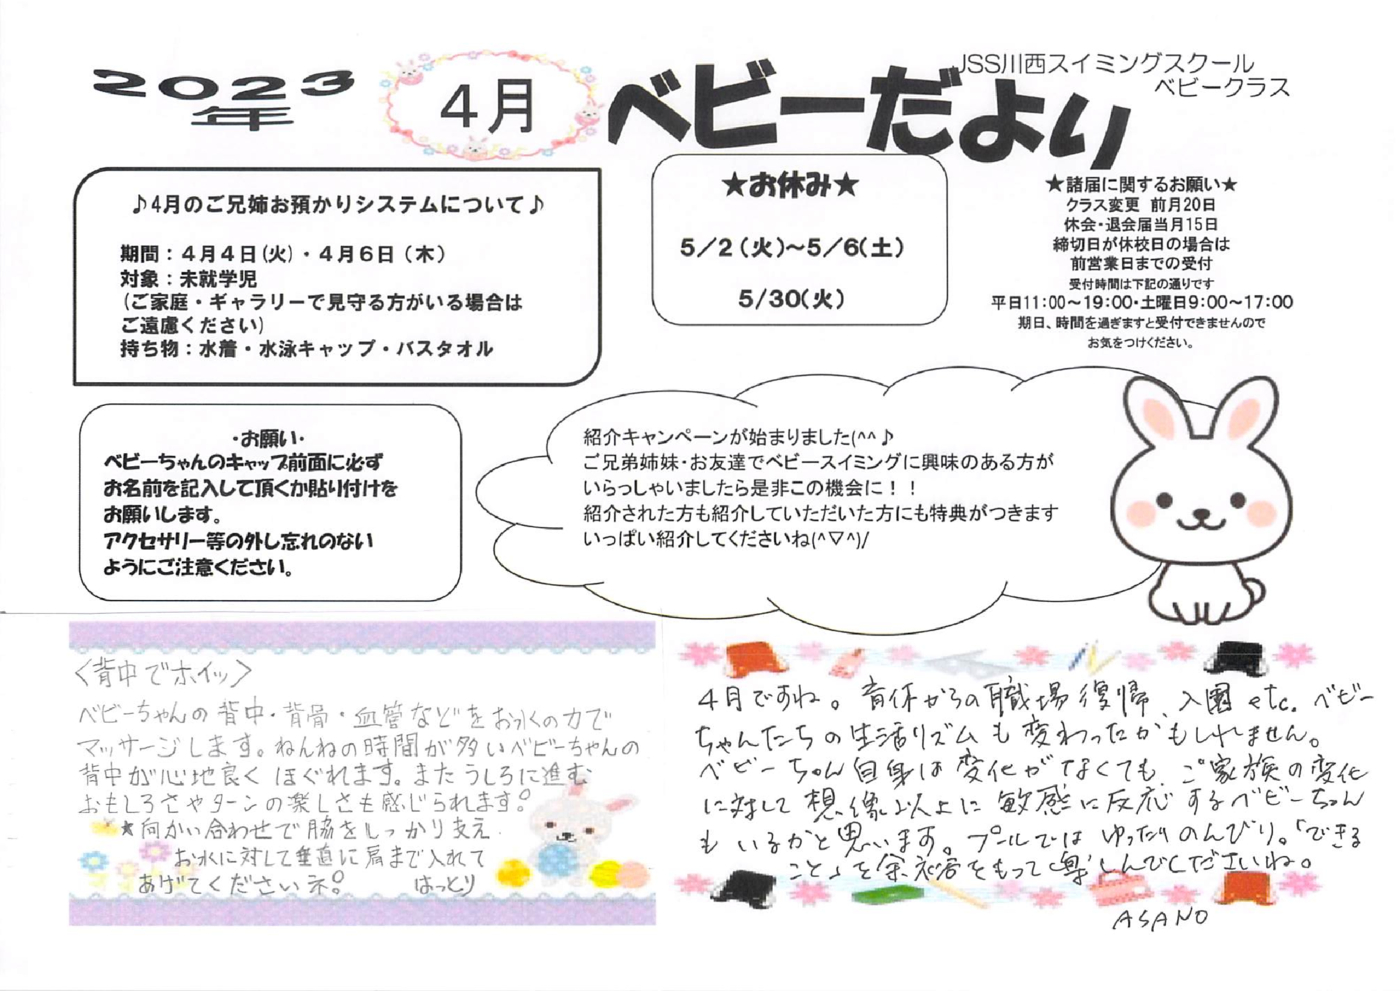 2023年
4月
ベビーだより
JSS川西スイミングスクール
ベビークラス
♪4月のご兄姉お預かりシステムについて♪
期間：４月４日(火)・４月６日（木）
対象：未就学児
(ご家庭・ギャラリーで見守る方がいる場合は
ご遠慮ください)
持ち物：水着・水泳キャップ・バスタオル
★お休み★
5／2（火）～5／6(土)
5/30(火)
★諸届に関するお願い★
クラス変更　前月20日
休会・退会届当月15日
締切日が休校日の場合は
前営業日までの受付
受付時間は下記の通りです
平日11:00～19:00・土曜日9:00～17:00
期日、時間を過ぎますと受付できませんので
お気をつけください。
・お願い・
ベビーちゃんのキャップ前面に必ず
お名前を記入して頂くか貼り付けを
お願いします。
アクセサリー等の外し忘れのない
ようにご注意ください。
紹介キャンペーンが始まりました(^^♪
ご兄弟姉妹・お友達でベビースイミングに興味のある方が
いらっしゃいましたら是非この機会に！！
紹介された方も紹介していただいた方にも特典がつきます
いっぱい紹介してくださいね(^▽^)/
〈背中でホイッ〉
ベビーちゃんの背中・背骨・血管などをお水の力で
マッサージします。ねんねの時間が多いベビーちゃんの
背中が心地良くほぐれます。またうしろに進む
おもしろさやターンの楽しさも感じられます。
★向かい合わせで脇をしっかり支え
お水に対して垂直に肩まで入れて
あげてくださいネ。　はっとり
4月ですね。育休からの職場復帰、入園etc. ベビー
ちゃんたちの生活リズムも変わったかもしれません。
ベビーちゃん自身は変化がなくても、ご家族の変化
に対して想像以上に敏感に反応するベビーちゃん
もいるかと思います。プールではゆったりのんびり。「できる
こと」を余裕をもって楽しんでくださいね。
ASANO